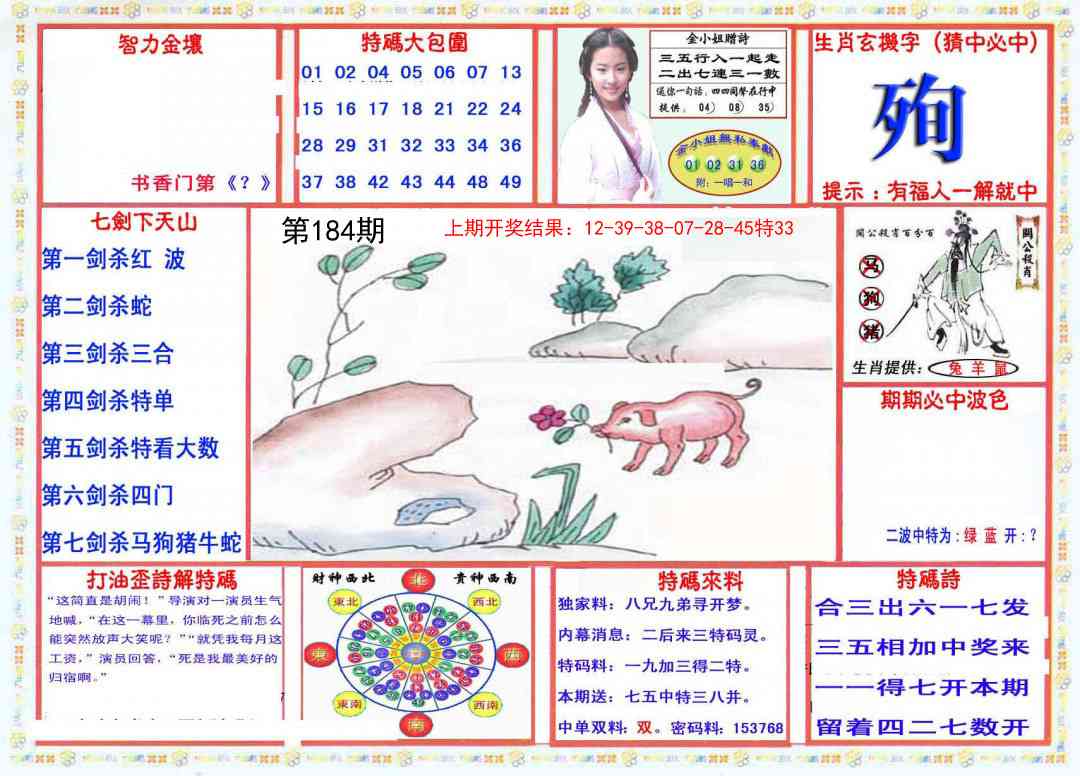 智力金壤
书香门第《？》
特碼大包圍
01 02 04 05 06 07 13
15 16 17 18 21 22 24
28 29 31 32 33 34 36
37 38 42 43 44 48 49
金小姐贈詩
三五行入一起走
二出七連三一數
送你一句话：四四同聲在行中
提供： 04) 08) 35)
金小姐無私奉献
01 02 31 36
附：一唱一和
生肖玄機字（猜中必中）
殉
提示：有福人一解就中
七劍下天山
第一剑杀红 波
第二剑杀蛇
第三剑杀三合
第四剑杀特单
第五剑杀特看大数
第六剑杀四门
第七剑杀马狗猪牛蛇
第184期
上期开奖结果：12-39-38-07-28-45特33
關公殺肖百分百
關公殺肖
马
狗
猪
生肖提供： 兔 羊 鼠
期期必中波色
二波中特为：绿 蓝 开：？
打油歪詩解特碼
“这简直是胡闹！”导演对一演员生气
地喊，“在这一幕里，你临死之前怎么
能突然放声大笑呢？”“就凭我每月这
工资，”演员回答，“死是我最美好的
归宿啊。”
財神西北
貴神西南
北
東北
西北
東
西
東南
西南
南
特碼來料
独家料：八兄九弟寻开梦。
内幕消息：二后来三特码灵。
特码料：一九加三得二特。
本期送：七五中特三八并。
中单双料：双。密码料：153768
特碼詩
合三出六一七发
三五相加中奖来
一一得七开本期
留着四二七数开